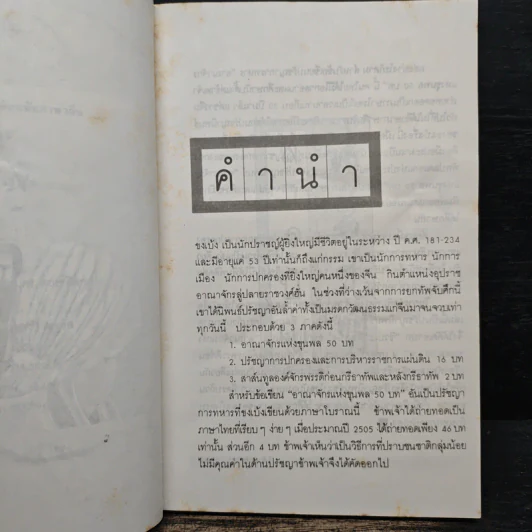 คำนำ
ขงเบ้ง เป็นนักปราชญ์ผู้ยิ่งใหญ่มีชีวิตอยู่ในระหว่าง ปี ค.ศ. 181-234
และมีอายุแค่ 53 ปีเท่านั้นก็ถึงแก่กรรม เขาเป็นนักการทหาร นักการ
เมือง นักการปกครองที่ยิ่งใหญ่คนหนึ่งของจีน กินตำแหน่งอุปราช
อาณาจักรสู่ปลายราชวงศ์ฮั่น ในช่วงที่ว่างเว้นจากการยกทัพจับศึกนี้
เขาได้นิพนธ์ปรัชญาอันล้ำค่าทั้งเป็นมรดกวัฒนธรรมแก่จีนมาจนจวบเท่า
ทุกวันนี้ ประกอบด้วย 3 ภาคดังนี้
1. อาณาจักรแห่งขุนพล 50 บท
2. ปรัชญาการปกครองและการบริหารราชการแผ่นดิน 16 บท
3. สาส์นทูลองค์จักรพรรดิก่อนกรีธาทัพและหลังกรีธาทัพ 2 บท
สำหรับข้อเขียน "อาณาจักรแห่งขุนพล 50 บท" อันเป็นปรัชญา
การทหารที่ขงเบ้งเขียนด้วยภาษาโบราณนี้ ข้าพเจ้าได้ถ่ายทอดเป็น
ภาษาไทยที่เรียบ ๆ ง่าย ๆ เมื่อประมาณปี 2505 ได้ถ่ายทอดเพียง 46 บท
เท่านั้น ส่วนอีก 4 บท ข้าพเจ้าเห็นว่าเป็นวิธีการที่ปราบชนชาติกลุ่มน้อย
ไม่มีคุณค่าในด้านปรัชญาข้าพเจ้าจึงได้คัดออกไป